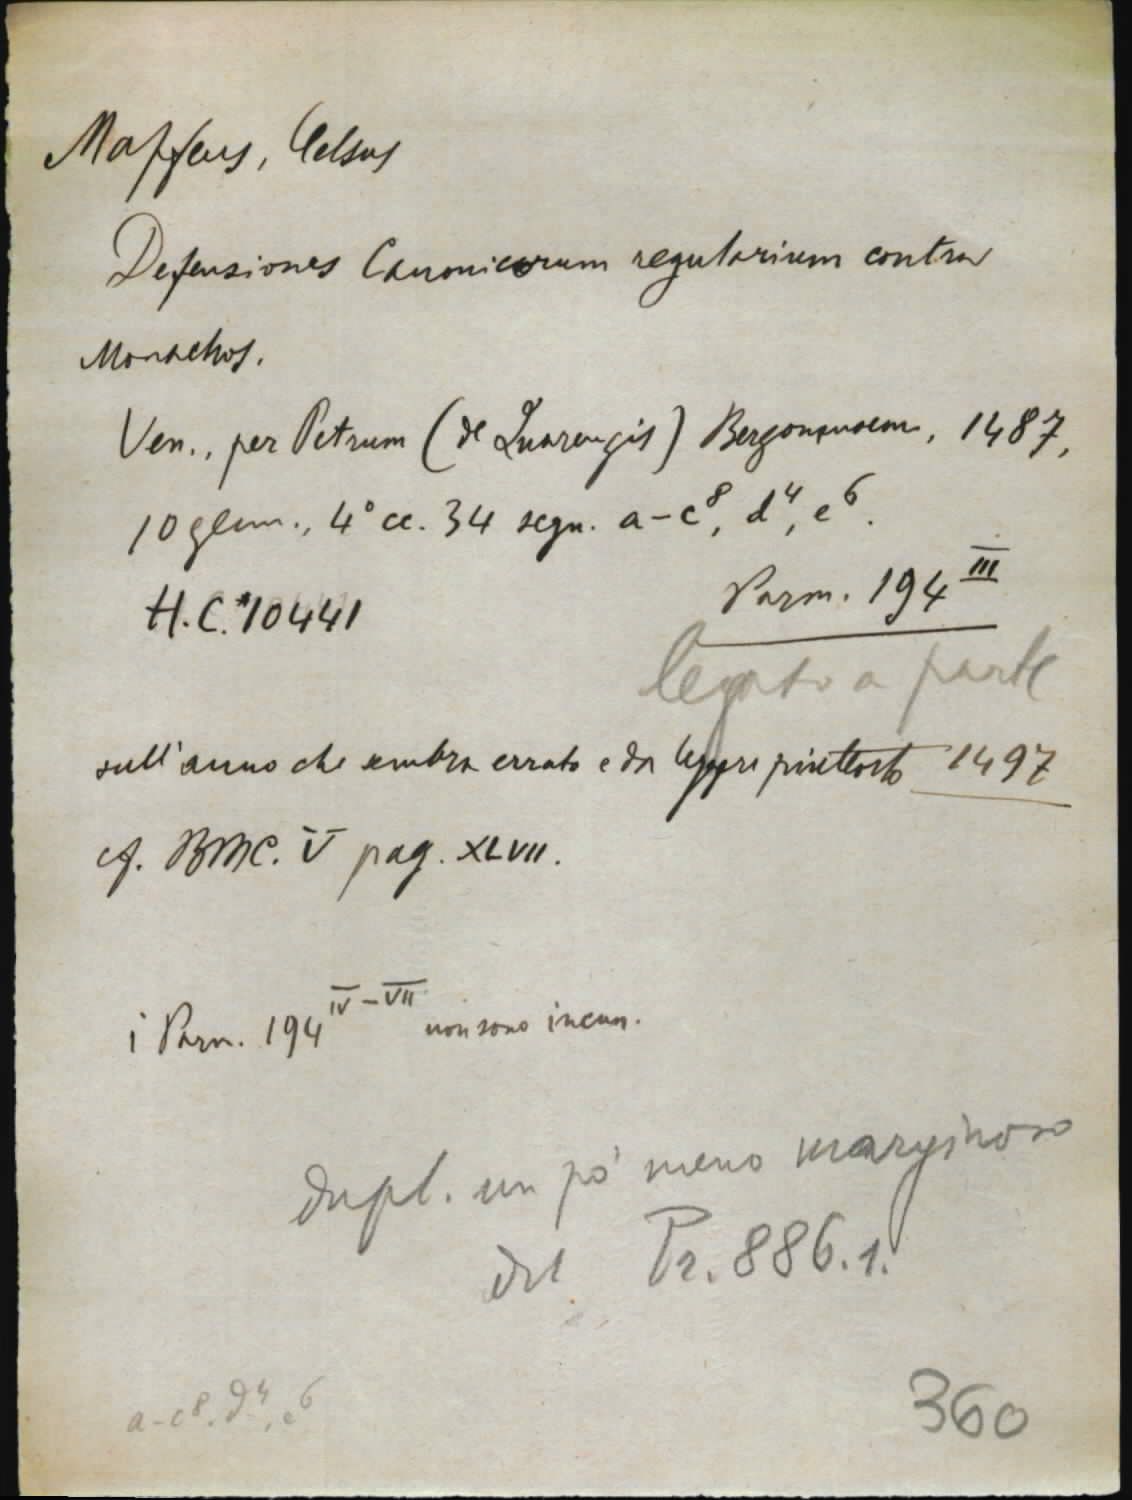 Maffeus, Celsus
Defensiones Canonicorum regularium contra
Monachos.
Ven., per Petrum (de Quarengis) Bergomensem, 1487,
10 genn., 4° cc. 34 segn. a-c⁸, d⁴, e⁶.
H.C.*10441
Parm. 194 III
legato a parte
sull'anno che sembra errato e da leggersi piuttosto 1497
cf. BMC. V pag. XLVII.
i Parm. 194 IV-VII non sono incun.
dupl. un pò meno marginoso
del Pr. 886.1.
a-c⁸. d⁴, e⁶
360